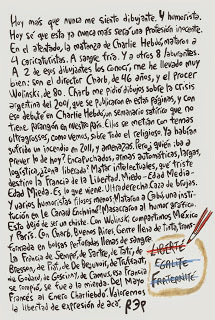 Hoy más que nunca me siento dibujante. Y humorista.
Hoy sé que esta ya nunca más será una profesión inocente.
En el atentado, la matanza de Charlie Hebdo, mataron a
4 caricaturistas. A sangre fría. Y a otros 8 laburantes.
A 2 de esos dibujantes los conocí, me he llevado muy
bien: son el director Charb, de 46 años, y el prócer
Wolinski, de 80. Charb me pidió dibujos sobre la crisis
argentina del 2001, que se publicaron en estas páginas, y con
eso debuté en Charlie Hebdo, un semanario satírico que no
tiene parangón en nuestro país. Ellos se metían con temas
ultragrosos, como vemos. Sobre todo el religioso. Ya habían
sufrido un incendio en 2011, y amenazas. Pero ¿quién iba a
prever lo de hoy? Encapuchados, armas automáticas, largas,
logística, ¡zona liberada! Matar intelectuales, qué triste
destino la Francia de la Libertad. Miedo - Edad Media -
Edad Miedo. Es lo que viene. Ultraderecha. Caza de brujas.
Y varios humoristas filosos menos. Mataron a Cabu, un insti-
tución en Le Canard Enchainé. Masacraron al humor gráfico.
Esto dejó de ser un chiste. Con Wolinski compartimos México
y París. Con Charb, Buenos Aires. Gente llena de tinta, trans-
formada en bolsas perforadas llenas de sangre.
La Francia de Sempé, de Sartre, de Tati, de
Bresson, de Piaf, de De Beauvoir, de Truffaut,
de Godard, de Gascoin, de Camus, esa Francia
se rompió, se fue a la mierda. Del Mayo
Francés al Enero Charliehebdó. Valoremos
la libertad de expresión de acá. REP
LIBERTÉ
EGALITÉ
FRATERNITÉ